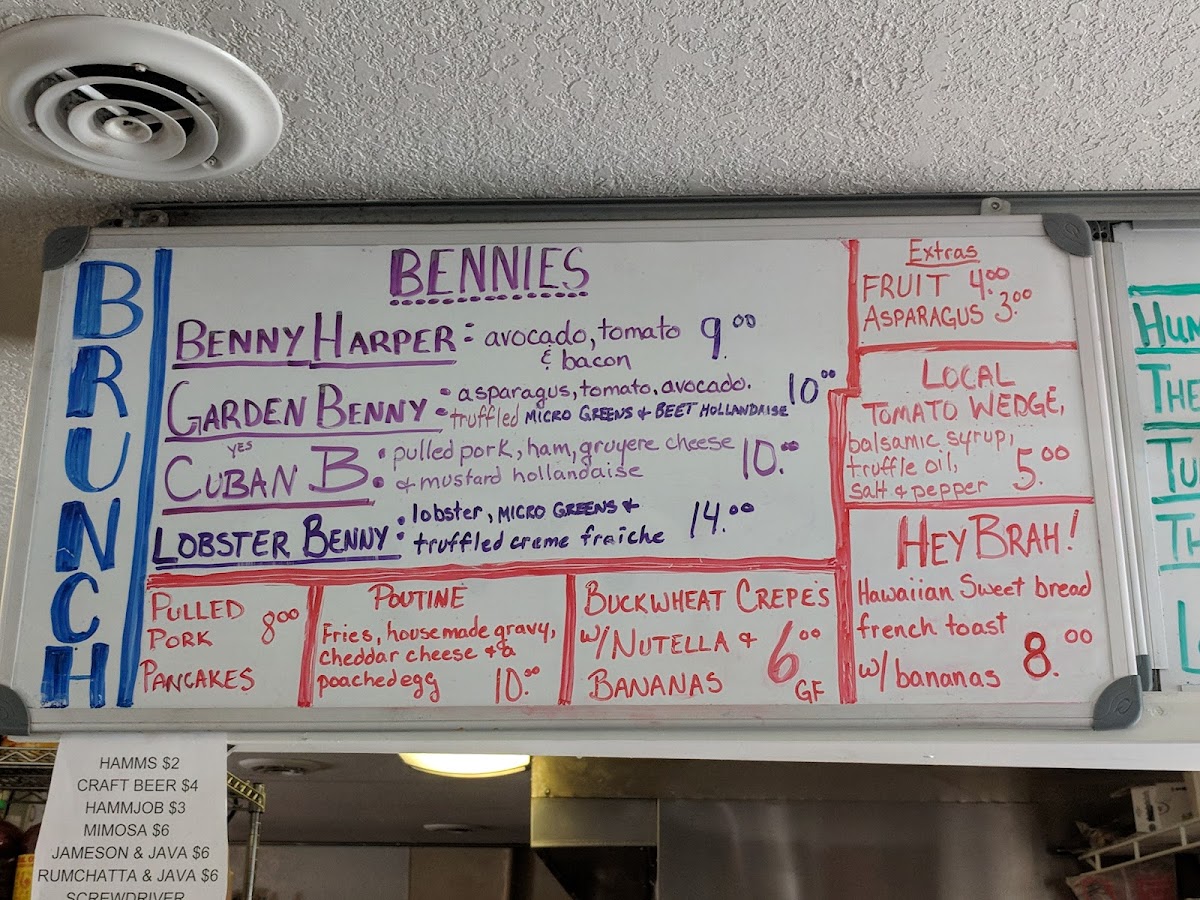 BRUNCH
BENNIES
BENNY HARPER: avocado, tomato 9.00
& bacon
GARDEN BENNY : asparagus, tomato, avocado. 10.00
truffled MICRO GREENS & BEET HOLLANDRISE
YES
CUBAN B. : pulled pork, ham, gruyere cheese 10.00
& mustard hollandaise
LOBSTER BENNY : lobster, MICRO GREENS & 14.00
truffled creme fraiche
Extras
FRUIT 4.00
ASPARAGUS 3.00
LOCAL
TOMATO WEDGE,
balsamic syrup,
truffle oil, 5.00
salt & pepper
HEY BRAH!
Hawaiian Sweet bread
french toast
w/ bananas 8.00
PULLED
PORK 8.00
PANCAKES
POUTINE
Fries, housemade gravy,
cheddar cheese & a
poached egg 10.00
BUCKWHEAT CREPE'S
W/ NUTELLA & 6.00
BANANAS GF
HUM
THE
TU
TH
L
HAMMS $2
CRAFT BEER $4
HAMMJOB $3
MIMOSA $6
JAMESON & JAVA $6
RUMCHATTA & JAVA $6
SCREWDRIVER